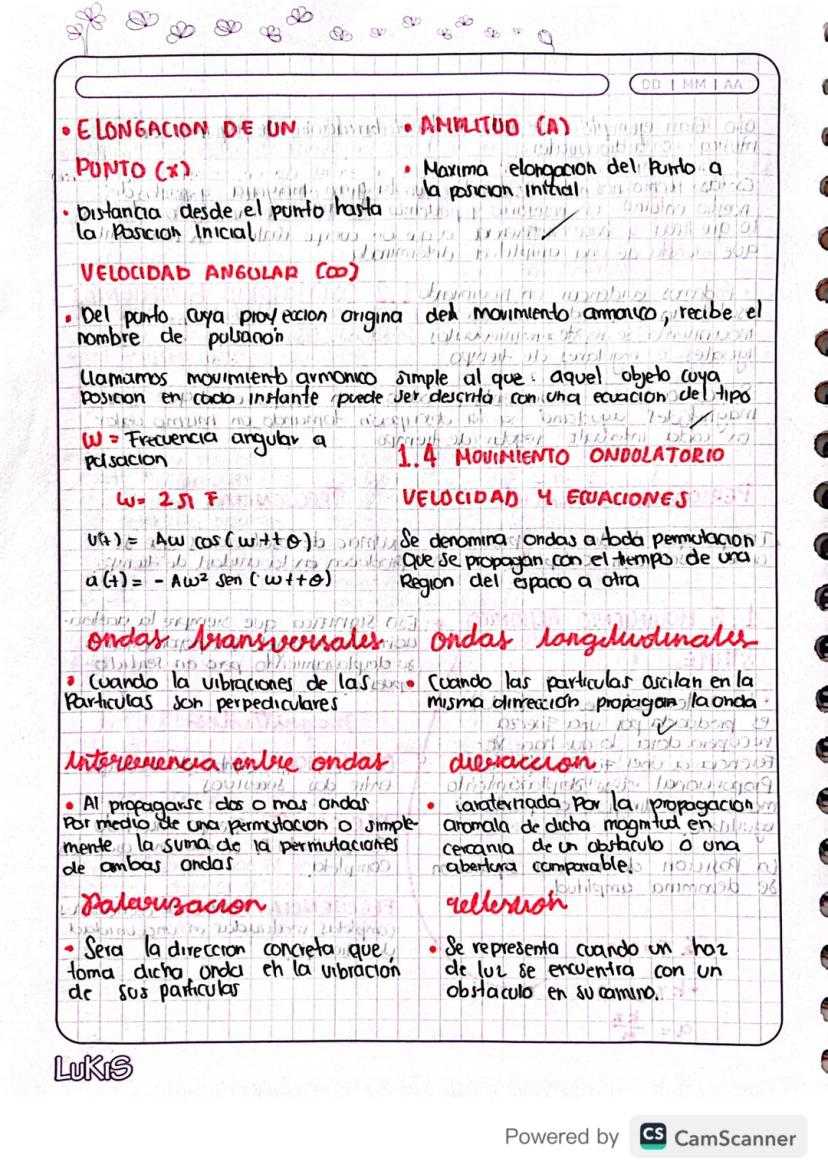 DD | MM | AA
• ELONGACION DE UN
PUNTO (x)
• Distancia desde el punto hasta
la Posicion Inicial
• AMPLITUD (A)
• Maxima elongacion del Punto a
la posicion initial
VELOCIDAD ANGULAR (ω)
• Del punto cuya proyeccion origina del movimiento armonico, recibe el
nombre de pulsanón
Llamamos movimiento armonico simple al que: aquel objeto cuya
Posicion en cada instante puede ser descrita con una ecuacion del tipo
W = Frecuencia angular a
polsacion
W= 2π F
v(t) = Aw cos (wt+θ)
a(t) = - Aw² sen (wt+θ)
1.4 MOVIMIENTO ONDOLATORIO
VELOCIDAD Y ECUACIONES
Se denomina ondas a toda permutacion
Que se propagan con el tiempo de una
Region del espacio a otra
ondas transversales
• Cuando la vibraciones de las
Particulas son perpediculares
ondas longitudinales
• Cuando las particulas oscilan en la
misma dirección propagan la onda
entre ondas
• Al propagarse dos o mas ondas
Por medio de una permutacion o simple-
mente la suma de la permutaciones
de ambas ondas
• Por la propagacion
anomala de dicha magnitud en
cercania de un obstaculo o una
abertura comparable.
Polarizacion
• Sera la direccion concreta que
toma dicha onda en la vibración
de sus particulas
reflexión
• Se representa cuando un haz
de luz se encuentra con un
obstaculo en su camino.
LUKIS
Powered by CS CamScanner